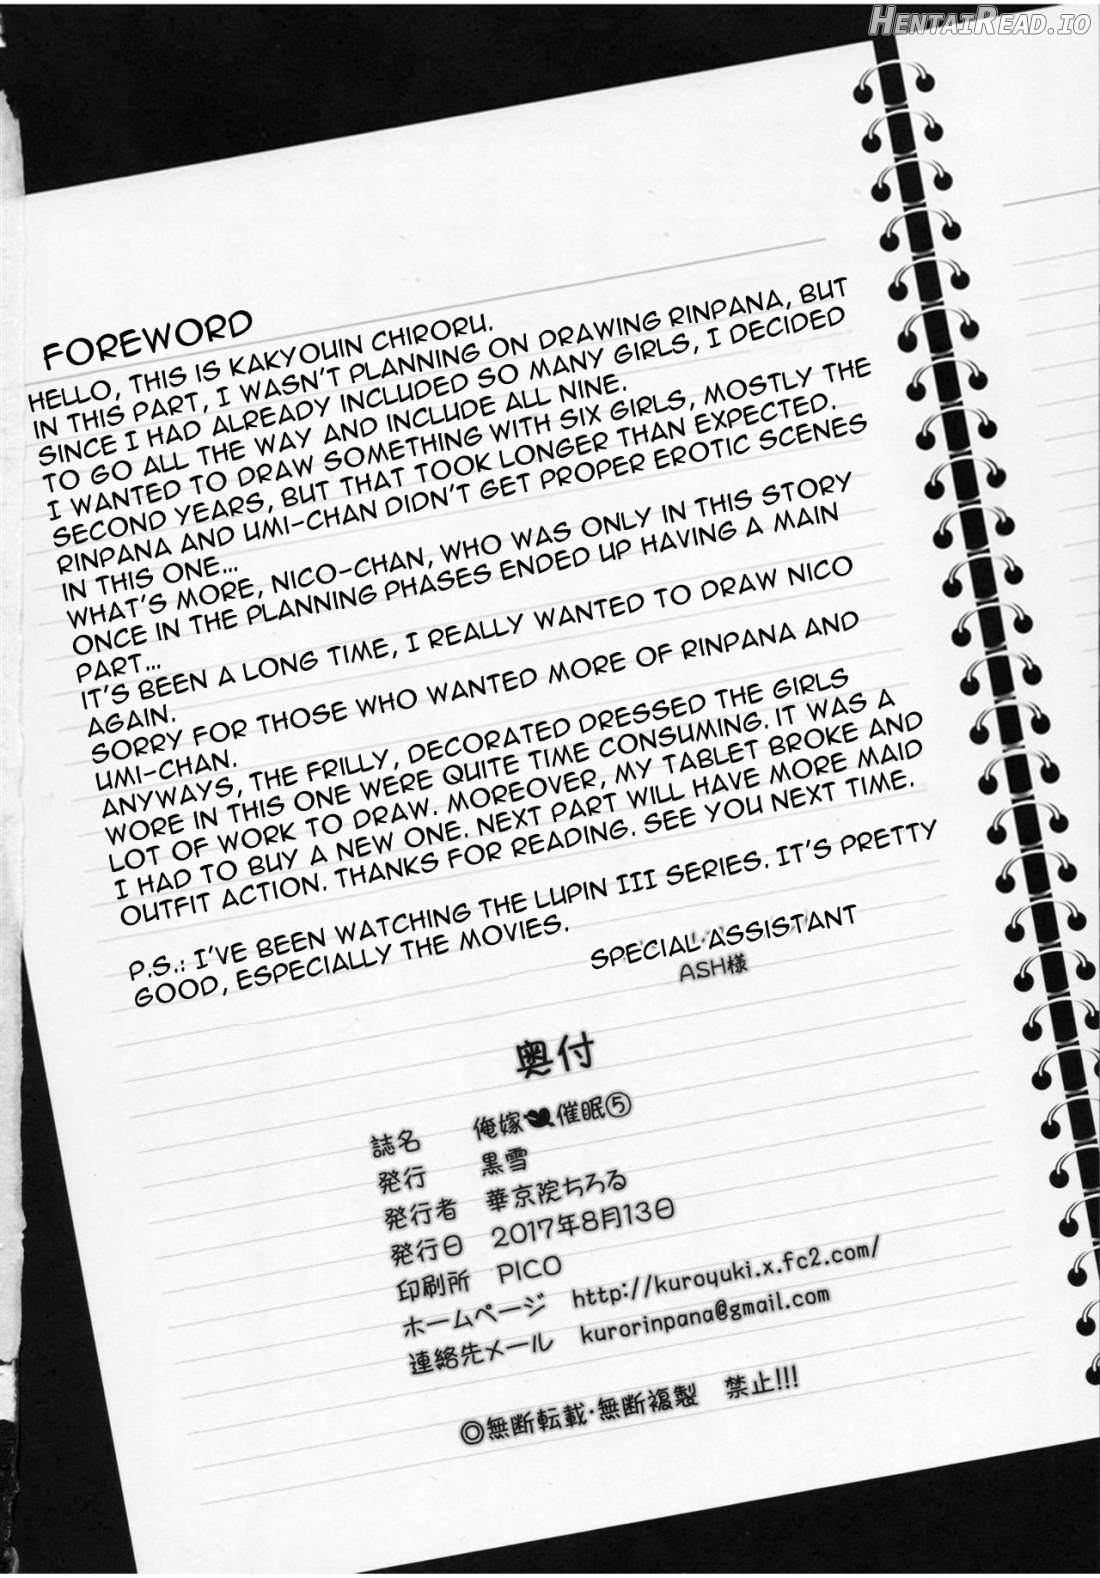 HENTAIREAD.IO
FOREWORD
HELLO, THIS IS KAKYOUIN CHIRORU.
IN THIS PART, I WASN'T PLANNING ON DRAWING RINPANA, BUT
SINCE I HAD ALREADY INCLUDED SO MANY GIRLS, I DECIDED
TO GO ALL THE WAY AND INCLUDE ALL NINE.
I WANTED TO DRAW SOMETHING WITH SIX GIRLS, MOSTLY THE
SECOND YEARS, BUT THAT TOOK LONGER THAN EXPECTED.
RINPANA AND UMI-CHAN DIDN'T GET PROPER EROTIC SCENES
IN THIS ONE...
WHAT'S MORE, NICO-CHAN, WHO WAS ONLY IN THIS STORY
ONCE IN THE PLANNING PHASES ENDED UP HAVING A MAIN
PART...
IT'S BEEN A LONG TIME, I REALLY WANTED TO DRAW NICO
AGAIN.
SORRY FOR THOSE WHO WANTED MORE OF RINPANA AND
UMI-CHAN.
ANYWAYS, THE FRILLY, DECORATED DRESSED THE GIRLS
WORE IN THIS ONE WERE QUITE TIME CONSUMING. IT WAS A
LOT OF WORK TO DRAW. MOREOVER, MY TABLET BROKE AND
I HAD TO BUY A NEW ONE. NEXT PART WILL HAVE MORE MAID
OUTFIT ACTION. THANKS FOR READING. SEE YOU NEXT TIME.
P.S.: I'VE BEEN WATCHING THE LUPIN III SERIES. IT'S PRETTY
GOOD, ESPECIALLY THE MOVIES.
SPECIAL ASSISTANT
ASH様
奥付
誌名 俺嫁催眠⑤
発行 黒雪
発行者 華京院ちろる
発行日 2017年8月13日
印刷所 PICO
ホームページ http://kuroyuki.x.fc2.com/
連絡先メール kurorinpana@gmail.com
◎無断転載・無断複製 禁止!!!